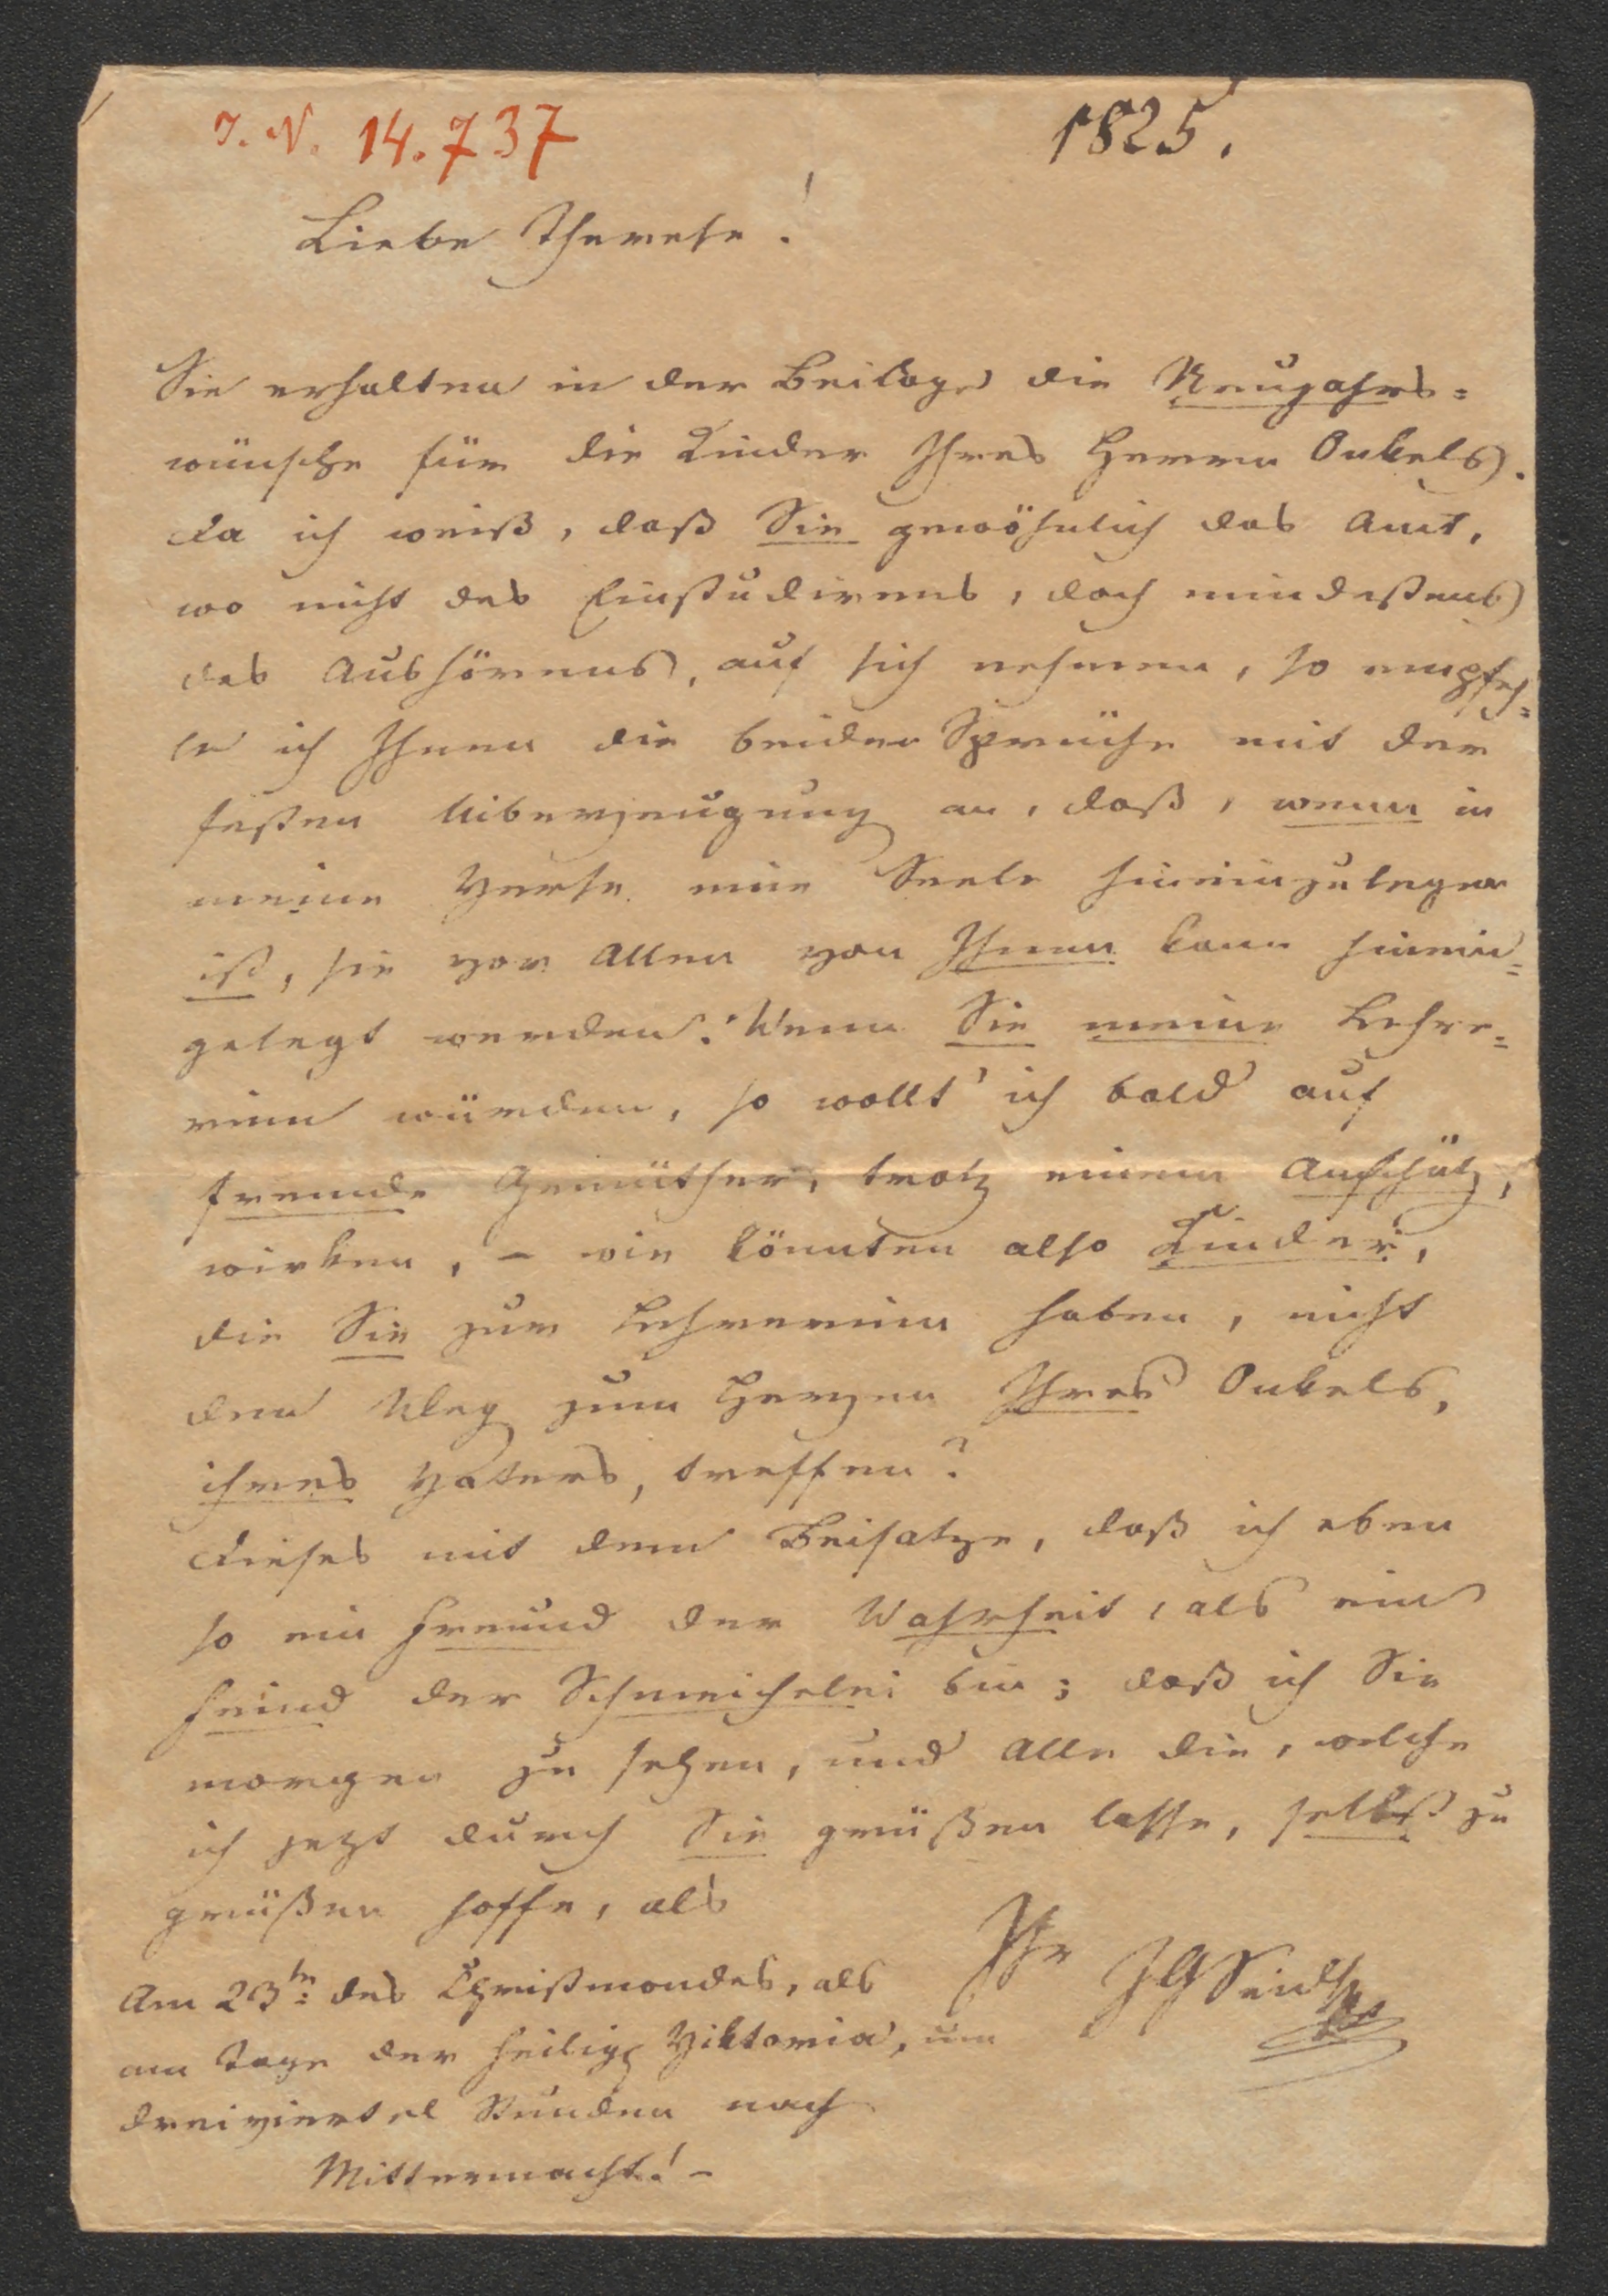 J. N. 14.737
1825.
Liebe Therese!
Sie erhalten in der Beilage die Neujahrs=
wünsche für die Kinder Ihres Herrn Onkels.
Da ich weiß, daß Sie gewöhnlich das Amt,
wo nicht des Einstudirens, doch mindestens
des Aushörens, auf sich nehmen, so empfeh=
le ich Ihnen die beiden Sprüche mit der
festen Uiberzeugung an, daß, wenn in
meine Verse eine Seele hineinzulegen
ist, sie vor Allen von Ihnen kann hinein=
gelegt werden. Wenn Sie meine Lehre=
rinn würden, so wollt' ich bald auf
fremde Gemüther, trotz einem Anschütz,
wirken, – wie könnten also Kinder,
die Sie zur Lehrerinn haben, nicht
den Weg zum Herzen Ihres Onkels,
ihres Vaters, treffen?
Dieses mit dem Beisatze, daß ich eben
so ein Freund der Wahrheit, als ein
Feind der Schmeichelei bin; daß ich Sie
morgen zu sehen, und Alle die, welche
ich jezt durch Sie grüßen lasse, selbst zu
grüßen hoffe, als
Ihr JGSeidl
Am 23tn des Christmondes, als
am Tage der heilig Viktoria, um
dreiviertel Stunden nach
Mitternacht! –